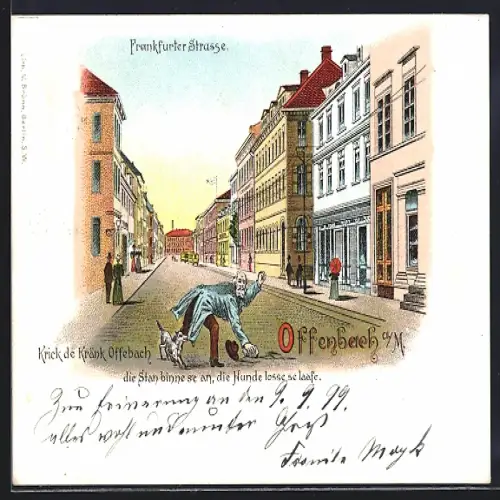 Frankfurter Strasse.
Offenbach a/M.
Krick de Kränk Offebach
die Stan binne se an, die Hunde losse se laafe.
Zur Erinnerung an den 9. 9. 99.
alles wohl und munter
Familie